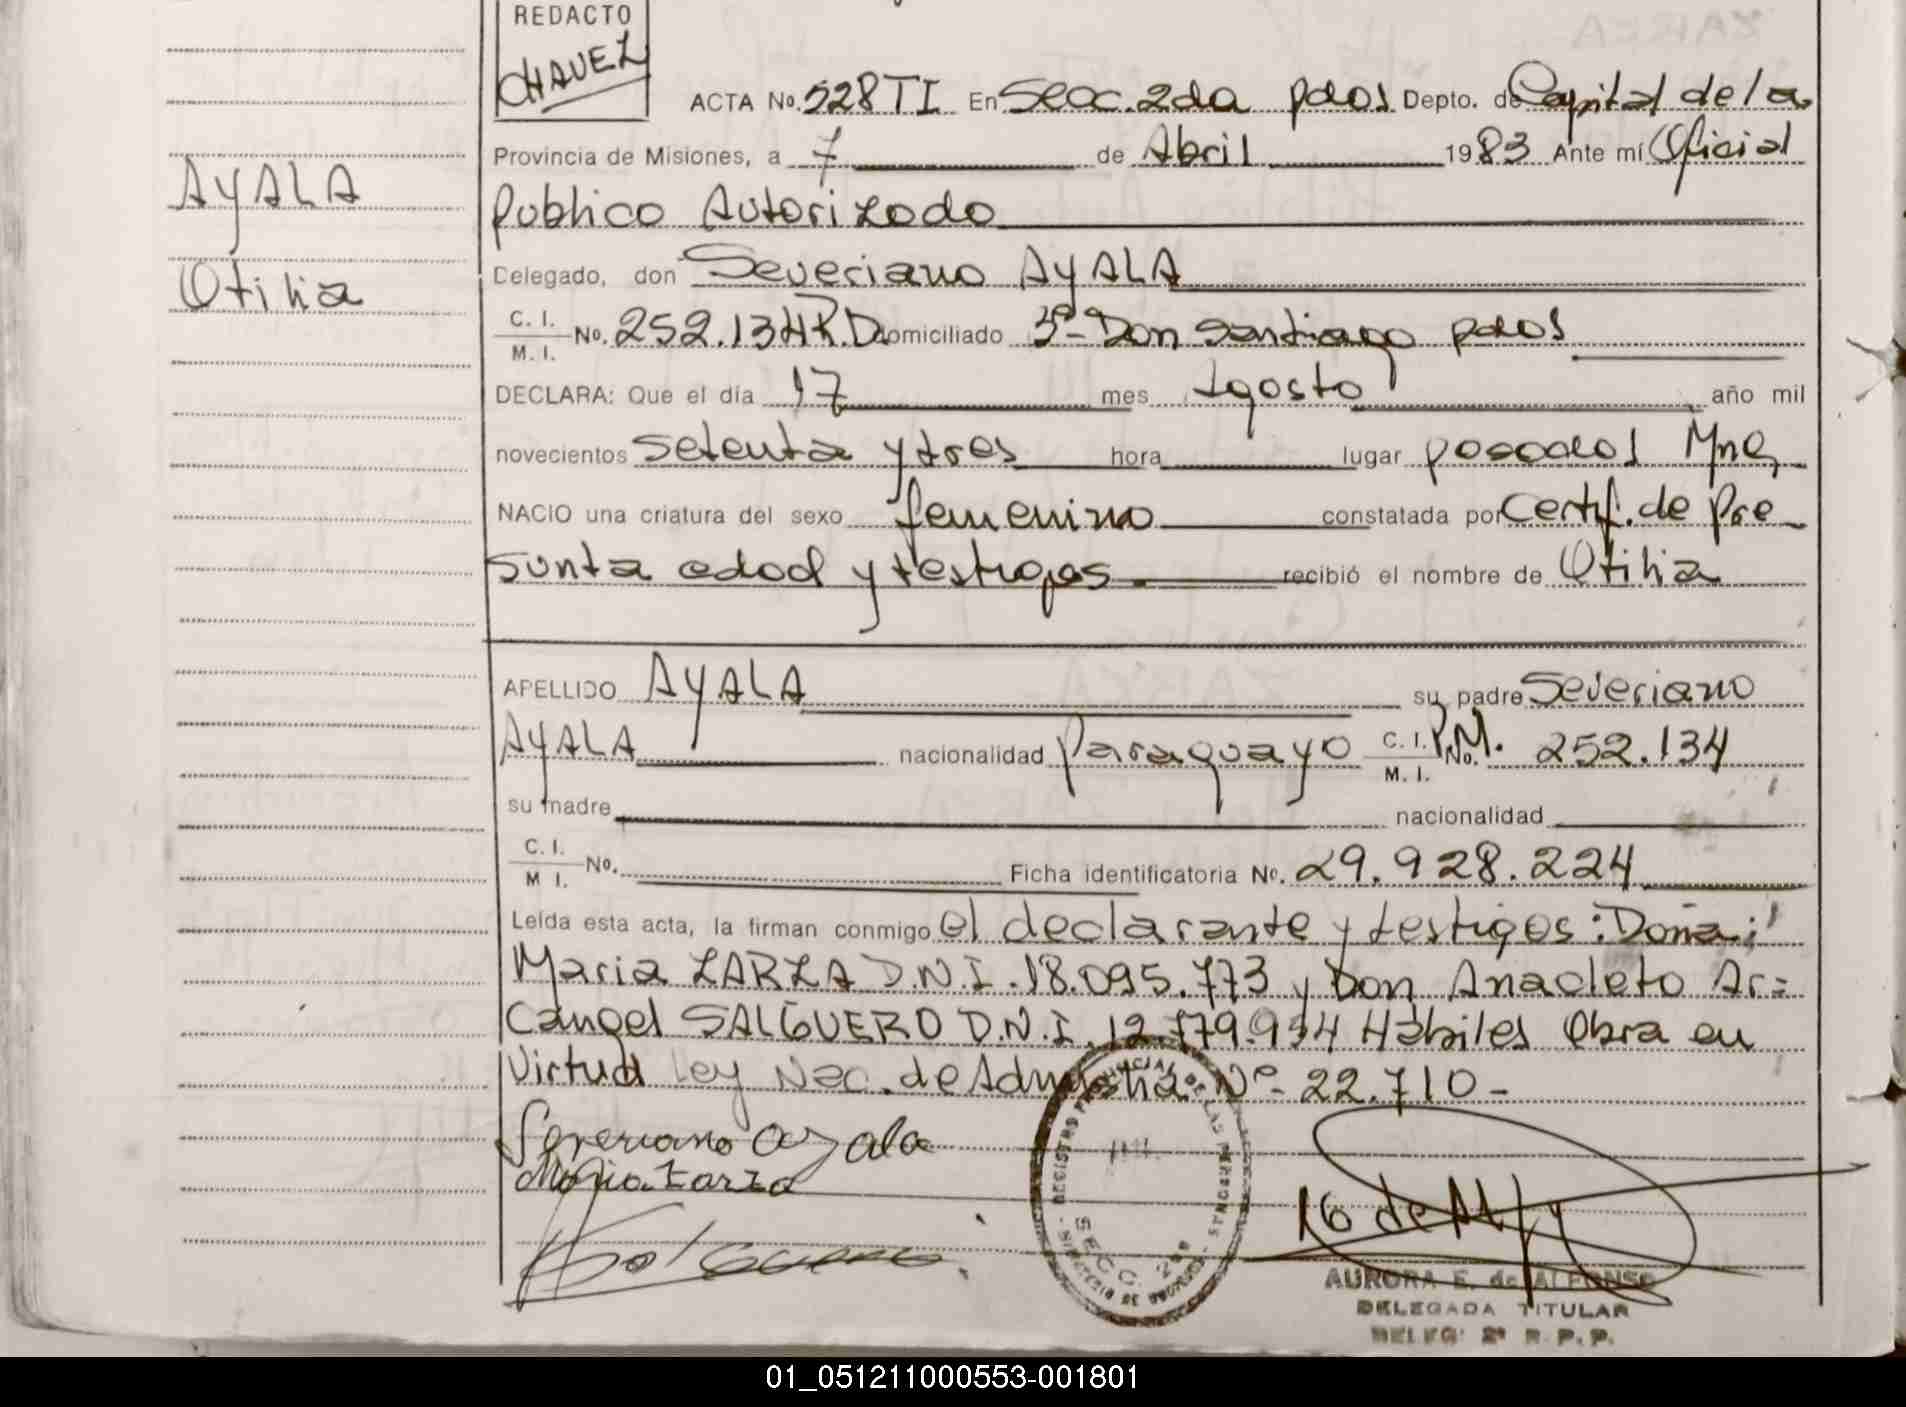 REDACTO
CHAVEZ
ACTA No. 528TI En Secc. 2da pdas Depto. de Capital de la
Provincia de Misiones, a 7 de Abril 1983 Ante mí Oficial
publico Autorizado
AYALA
Delegado, don Severiano AYALA
Otilia
C. I.
M. I. No. 252.134 R. Domiciliado 3º- Don Santiago pdas
DECLARA: Que el día 17 mes Agosto año mil
novecientos setenta y tres hora lugar posadas Mnes
NACIO una criatura del sexo femenino constatada por Certif. de Pre
sunta edad y testigos. recibió el nombre de Otilia
APELLIDO AYALA su padre Severiano
AYALA nacionalidad Paraguayo C. I. M. I. No. 252.134
su madre nacionalidad
C. I.
M I. No. Ficha identificatoria No. 29.928.224
Leída esta acta, la firman conmigo el declarante y testigos: Doña;
Maria ZARZA D.N.I. 18.095.773 y Don Anacleto Ar=
cangel SALGUERO D.N.I. 12.779.994 Habiles Obra en
Virtud Ley Nac. de Nº- 22.710-
Severiano Ayala
Maria Zarza
REGISTRO PROVINCIAL DE LAS PERSONAS
SECC. 2da
AURORA E. de ALFONSO
DELEGADA TITULAR
DELEG. 2ª R. P. P.
01_051211000553-001801